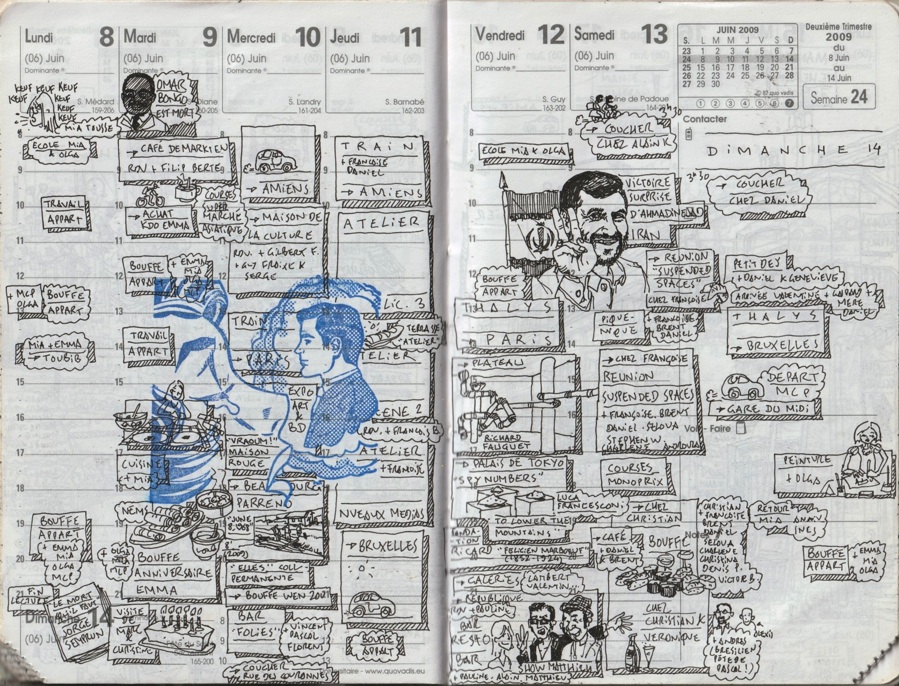 Lundi 8
(06) Juin
Dominante
S. Médard
159-206
KEUF KEUF KEUF
KEUF KEUF
KEUF
KEUF
MIA TOUSSE
ECOLE MIA
& OLGA
TRAVAIL
APPART
+ MCP
OLGA
BOUFFE
APPART
MIA + EMMA
→ TOUBIB
BOUFFE
APPART
+ EMMA
MIA
OLGA
MCP
FIN
LECTURE
LE MORT
QU'IL FAUT
JORGE
SEMPRUN
Dimanche 14
(06) Juin
Mardi 9
(06) Juin
OMAR
BONGO
EST MORT
→ CAFÉ DEMARKIEN
ROV. + FILIP BERTE
→ ACHAT
KDO EMMA
COURSES
SUPER
MARCHÉ
ASIATIQUE
BOUFFE
APPART
+ EMMA
MIA
TRAVAIL
APPART
CUISINE
+ MIA
NEMS
BOUFFE
ANNIVERSAIRE
EMMA
+ OLGA
MIA
MCP
VISITE
DE
MARC
&
CHRISTINE
165-200
Mercredi 10
(06) Juin
Dominante
S. Landry
161-204
→ AMIENS
→ MAISON DE
LA CULTURE
ROV. + GILBERT F.
SERGE
TRAIN
→ PARIS
EXPO
ART
&
BD
"VRAOUM!"
MAISON
ROUGE
→ BEAUBOURG
PARRENO
"JUNE
8, 1968"
(2009)
"ELLES" COLL.
PERMANENTE
→ BOUFFE WEN 2001
BAR
"FOLIES"
+ VINCENT
PASCAL
FLORENT
→ COUCHER
RUE DES COURONNES
Jeudi 11
(06) Juin
Dominante
S. Barnabé
162-203
TRAIN
+ FRANÇOISE
DANIEL
→ AMIENS
ATELIER
LIC. 3
ATELIER
SCENE 2
ROV. + FRANÇOIS B
ATELIER
+ FRANÇOISE
NVEAUX MEDIAS
→ BRUXELLES
BOUFFE
APPART
www.quovadis.eu
Vendredi 12
(06) Juin
Dominante
S. Guy
163-202
ECOLE MIA & OLGA
BOUFFE
APPART
THALYS
PARIS
→ PLATEAU
RICHARD
FAUGUET
→ PALAIS DE TOKYO
"SPY NUMBERS"
LUCA
FRANCESCONI
"TO LOWER THE
MOUNTAINS"
FONDATION
RICARD
"FELICIEN MARBOEUF"
(1852-1924)
GALERIES
LAMBERT
VALENTIN
REPUBLIQUE
ROV + PAULINE
BAR
RESTO
BAR
SHOW MATTHIEU
+ PAULINE - ALAIN, MATTHIEU
Samedi 13
(06) Juin
Dominante
3h30
→ COUCHER
CHEZ ALAIN K
VICTOIRE
SURPRISE
D'AHMADINEDJAD
IRAN
→ REUNION
"SUSPENDED
SPACES"
CHEZ FRANÇOISE
+ FRANÇOISE
BRENT
DANIEL
PIQUE-
NIQUE
→ CHEZ FRANÇOISE
REUNION
SUSPENDED SPACES
+ FRANÇOISE, BRENT
DANIEL
STEPHEN W
COURSES
MONOPRIX
→ CHEZ
CHRISTIAN
→ CAFÉ
+ DANIEL
& BRENT
BOUFFE
CHRISTIAN
+ FRANÇOISE
BRENT
DANIEL
CHARLENE
CHRISTINA
DENIS P.
VICTOR B
CHEZ
CHRISTIAN &
VERONIQUE
+ ANDRAS
BRESILIEN
PETE DE
PASCAL!
JUIN 2009
S. L M M J V S D
23 1 2 3 4 5 6 7
24 8 9 10 11 12 13 14
25 15 16 17 18 19 20 21
26 22 23 24 25 26 27 28
27 29 30
Deuxième Trimestre
2009
du
8 Juin
au
14 Juin
Semaine 24
Contacter
DIMANCHE 14
3h30
→ COUCHER
CHEZ DANIEL
PETIT DEJ
+ DANIEL & GENEVIEVE
THALYS
→ BRUXELLES
DEPART
MCP
→ GARE DU MIDI
Voir - Faire
PEINTURE
+ OLGA
RETOUR
MIA
BOUFFE
APPART
+ EMMA
MIA
OLGA